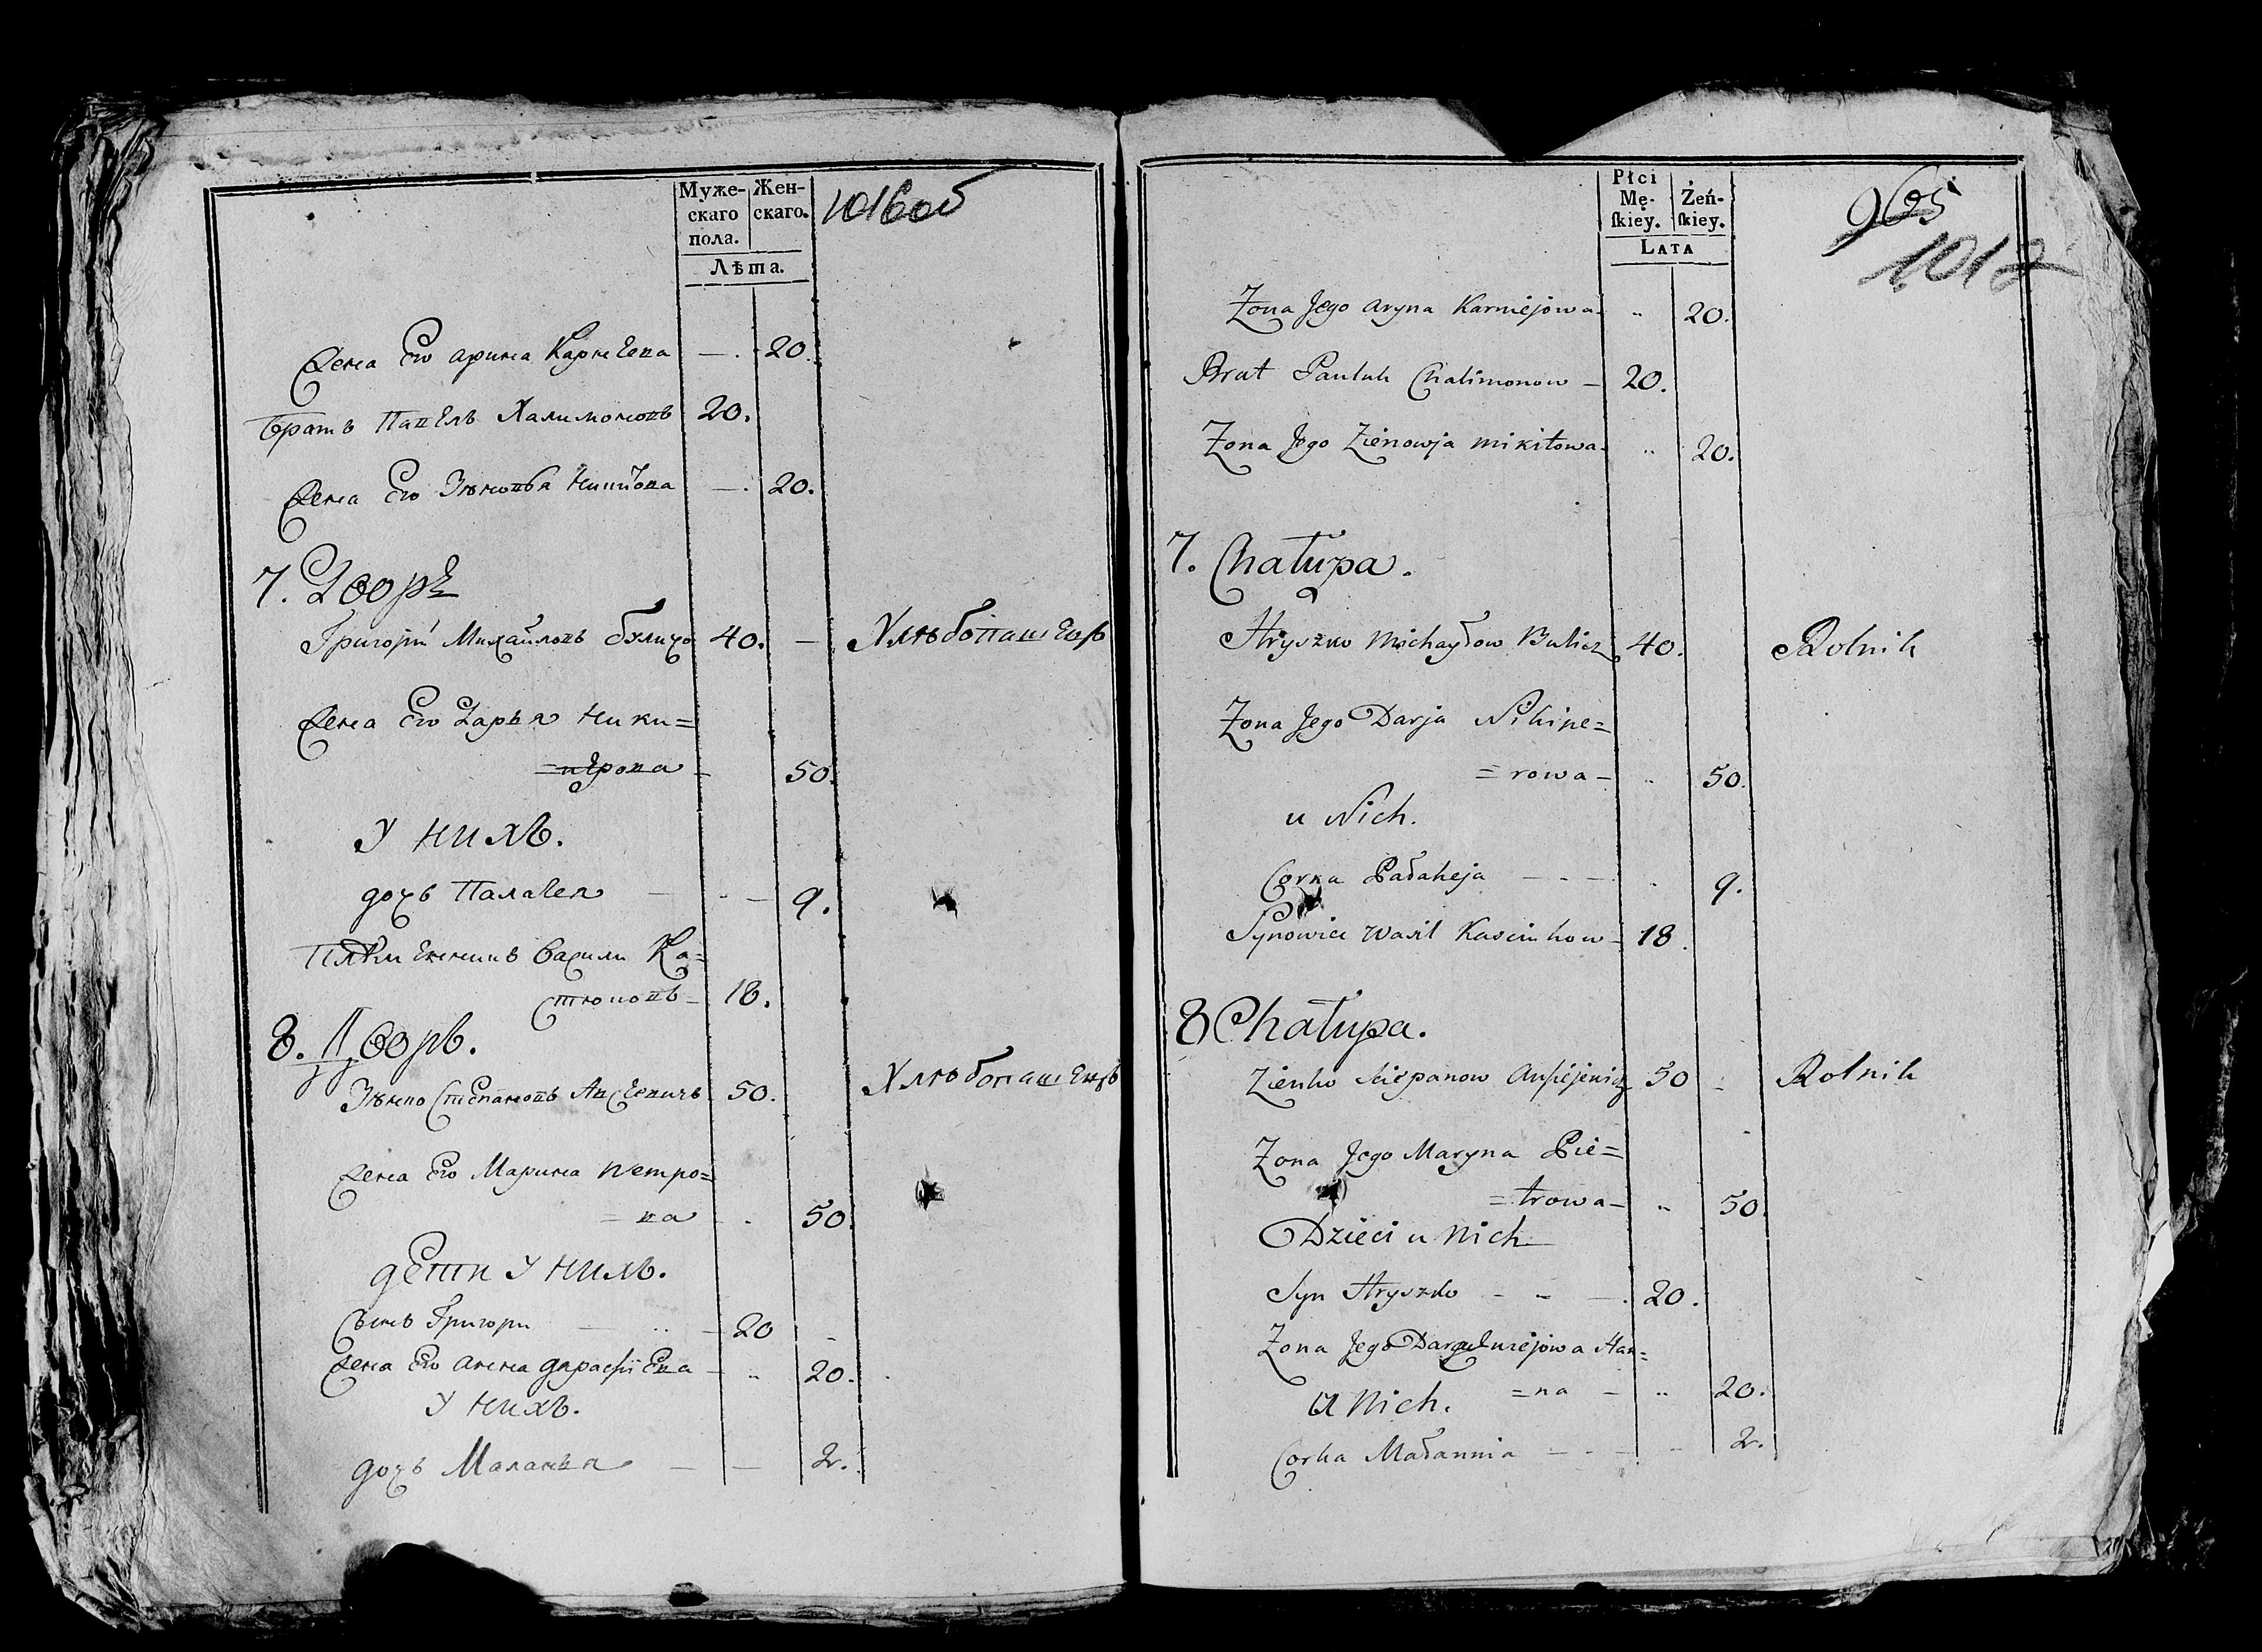 Муже-
скаго
пола.
Жен-
скаго.
Лѣта.
1016об
Жена Его Арина Карнѣева — 20.
Братъ Павелъ Халимоновъ 20.
Жена Его Зѣновья Никитова — 20.
7. Дворъ
Григорій Михайловъ 40. — Хлѣбопашецъ
Жена Его Дарья Ники=
=перова 50.
У нихъ.
дочь Палагея — 9.
Племенникъ Василей Ка=
стюковъ 18.
8. Дворъ.
Зѣнко Степановъ Авсеевичъ 50. Хлѣбопашецъ
Жена Его Марина Петро=
=ва 50.
дети У нихъ.
Сынъ Григори 20 -
Жена Его Анна 20.
У нихъ.
дочь Маланья — 2.
Płci
Mę-
ſkiey.
Żeń-
ſkiey.
LATA
965
1017
Zona Jego Aryna Karniejowa 20.
Brat Pauluk Chalimonow — 20.
Zona Jego Zienowja Mikitowa 20.
7. Chałupa.
Hryszko Michayłow Bulicz 40. Rolnik
Zona Jego Darja Nikipe=
=rowa — 50.
u Nich.
Corka Pałaheja — 9.
Synowiec Wasil Kasciukow — 18.
8 Chałupa.
Zienko Sciepanow Awsiejewicz 50 - Rolnik
Zona Jego Maryna Pie=
=trowa — 50.
Dzieci u Nich
Syn Hryszko — 20.
Zona Jego Han=
=na — 20.
U Nich.
Corka Małannia — 2.